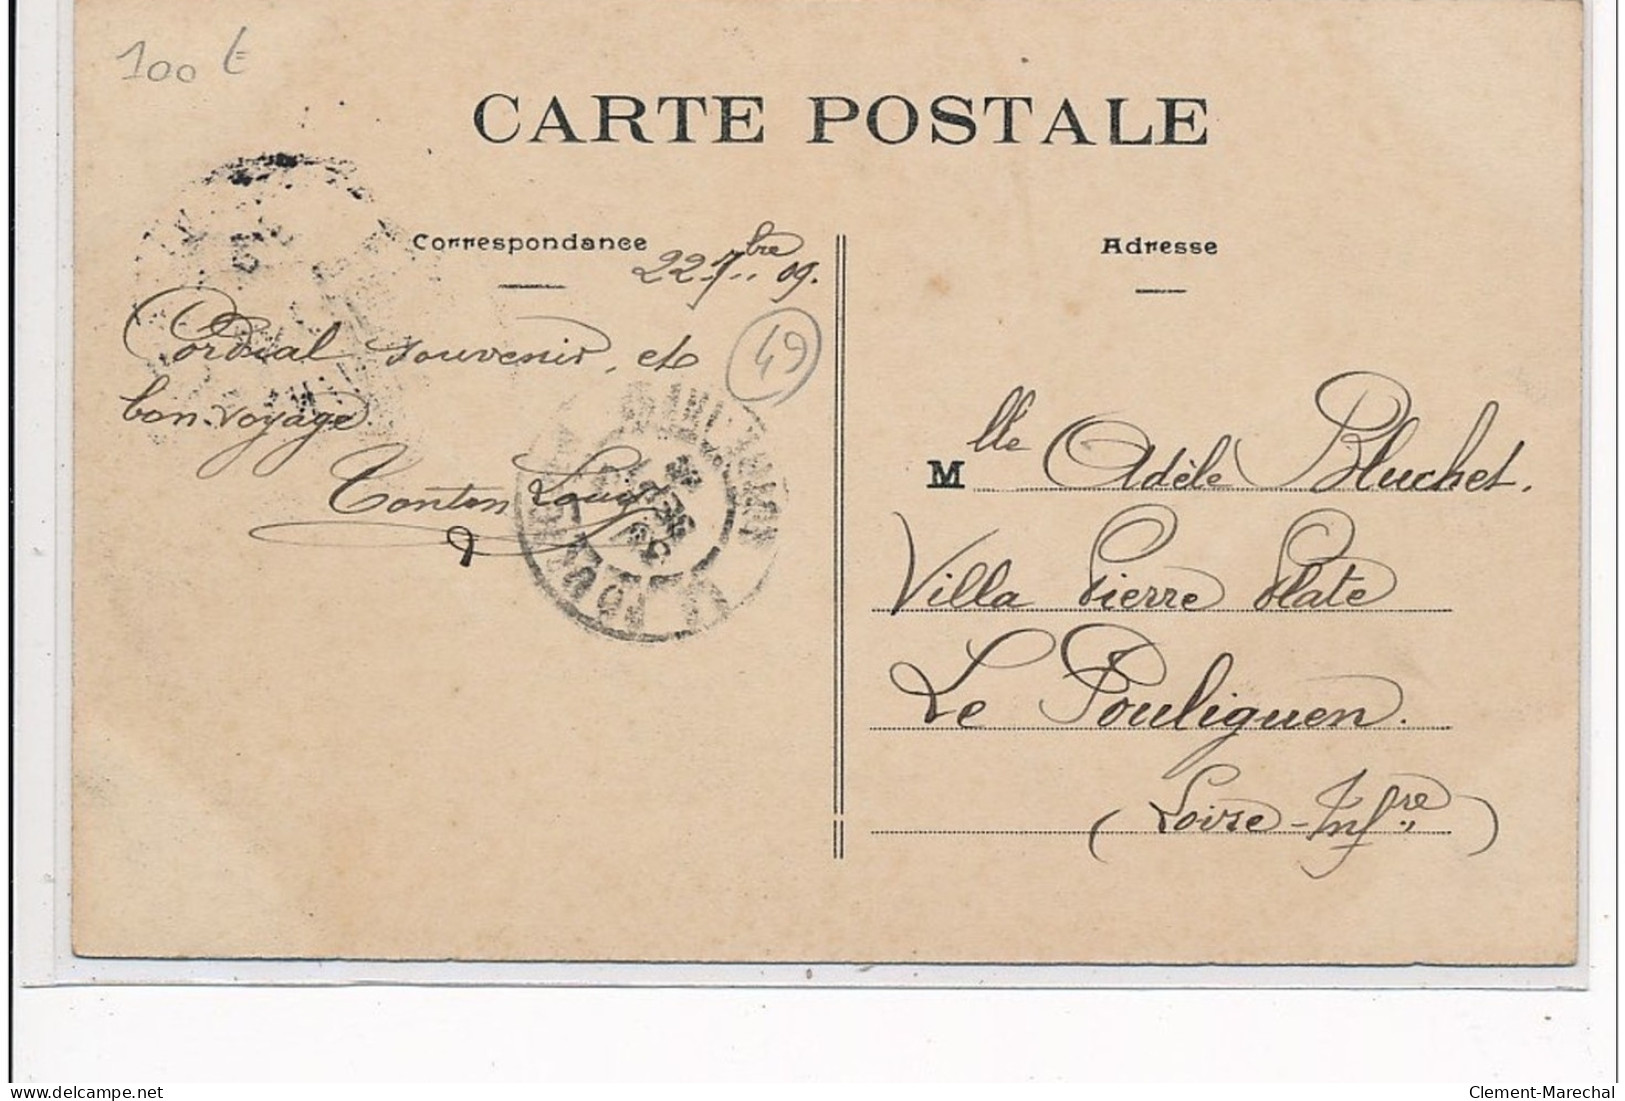 100 t
CARTE POSTALE
Correspondance
22 7bre 09.
Cordial souvenir, et
bon voyage.
Tonton Louis
49
Adresse
Mlle Adèle Bluchet.
Villa Pierre Plate
Le Pouliguen.
(Loire-Infre)
delcampe.net
Clement-Marechal